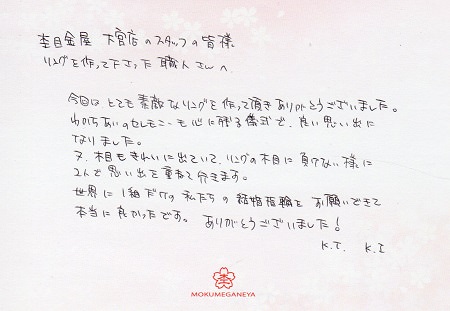 杢目金屋 大宮店のスタッフの皆様
リングを作って下さった職人さんへ
今回はとても素敵なリングを作って頂きありがとうございました。
わかちあいのセレモニーも心に残る儀式で、良い思い出に
なりました。
又、木目もきれいに出ていて、リングの木目に負けない様に
2人で思い出を重ねて行きます。
世界に1組だけの私たちの結婚指輪をお願いできて
本当に良かったです。 ありがとうございました!
K.T. K.I
杢
MOKUMEGANEYA